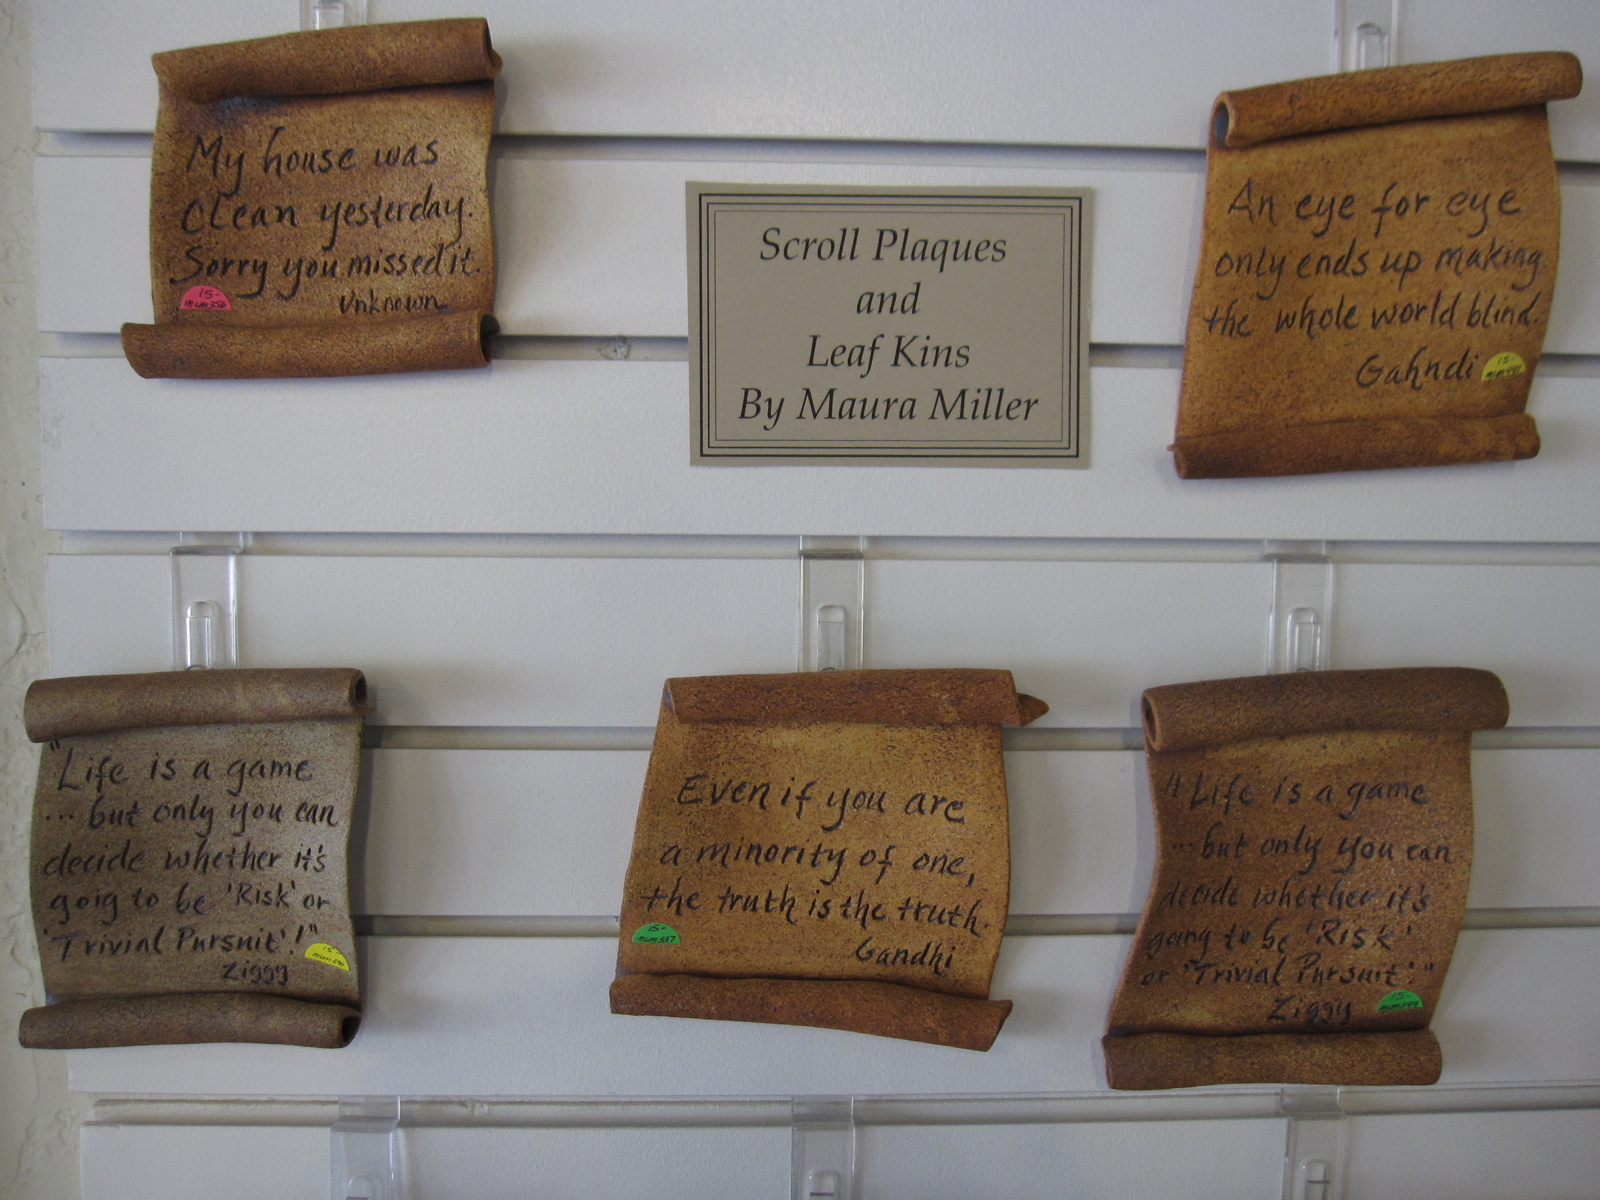 My house was
Clean yesterday.
Sorry you missed it.
Unknown
15-
Scroll Plaques
and
Leaf Kins
By Maura Miller
An eye for eye
only ends up making
the whole world blind.
Gahndi
15-
"Life is a game
...but only you can
decide whether it's
goig to be 'Risk' or
'Trivial Pursuit'!"
Ziggy
15-
Even if you are
a minority of one,
the truth is the truth.
Gandhi
15-
mLm337
"Life is a game
...but only you can
decide whether it's
going to be 'Risk'
or 'Trivial Pursuit'"
Ziggy
15-